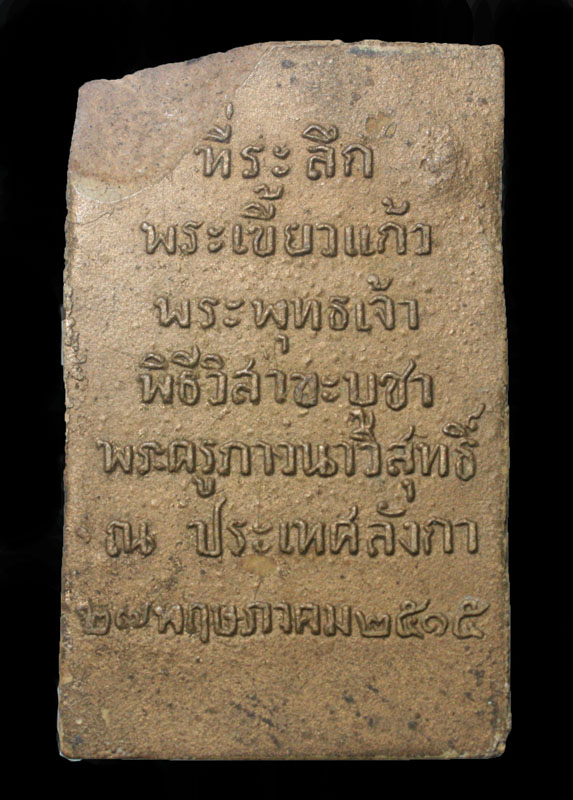 ที่ระลึก
พระเขี้ยวแก้ว
พระพุทธเจ้า
พิธีวิสาขะบูชา
พระครูภาวนาวิสุทธิ์
ณ ประเทศลังกา
๒๗พฤษภาคม๒๕๑๕